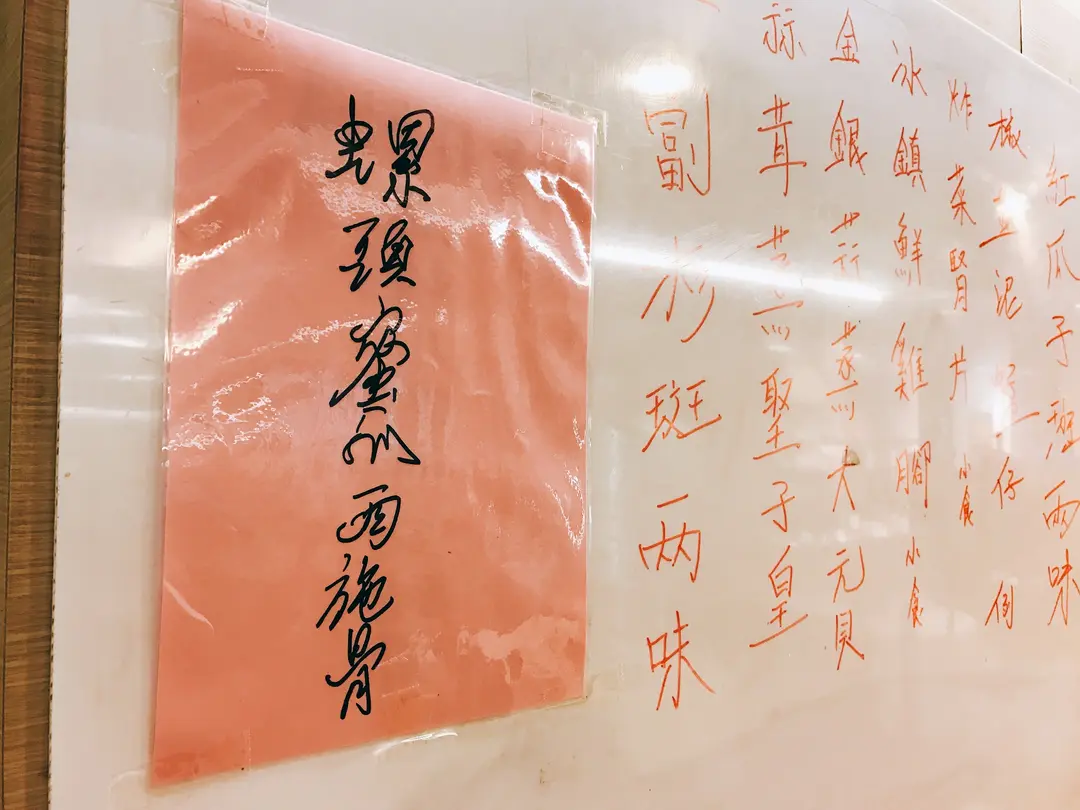 紅瓜子斑兩味
椒泥仔 例
炸菜腎片 小食
冰鎮鮮雞腳 小食
金銀蒜蒸大元貝
蒜茸蒸聖子皇
副杉斑两味
螺頭蜜瓜西施骨